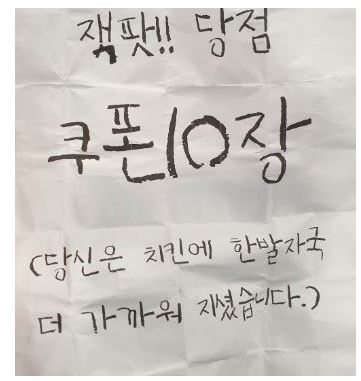 잭팟!! 당점
쿠폰10장
(당신은 치킨에 한발자국
더 가까워 지셨습니다.)